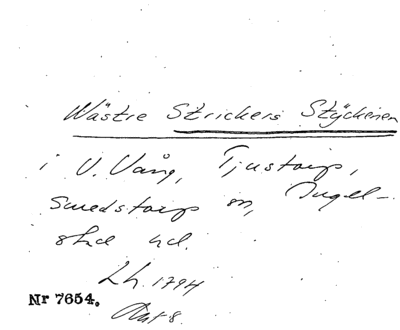 Wästre Strickers Stÿckenen
i V. Vång, Tjustorp,
Smedstorp sn, Ingel-
stad hd.
Lh. 1794
Nr 7654. Akt 8.